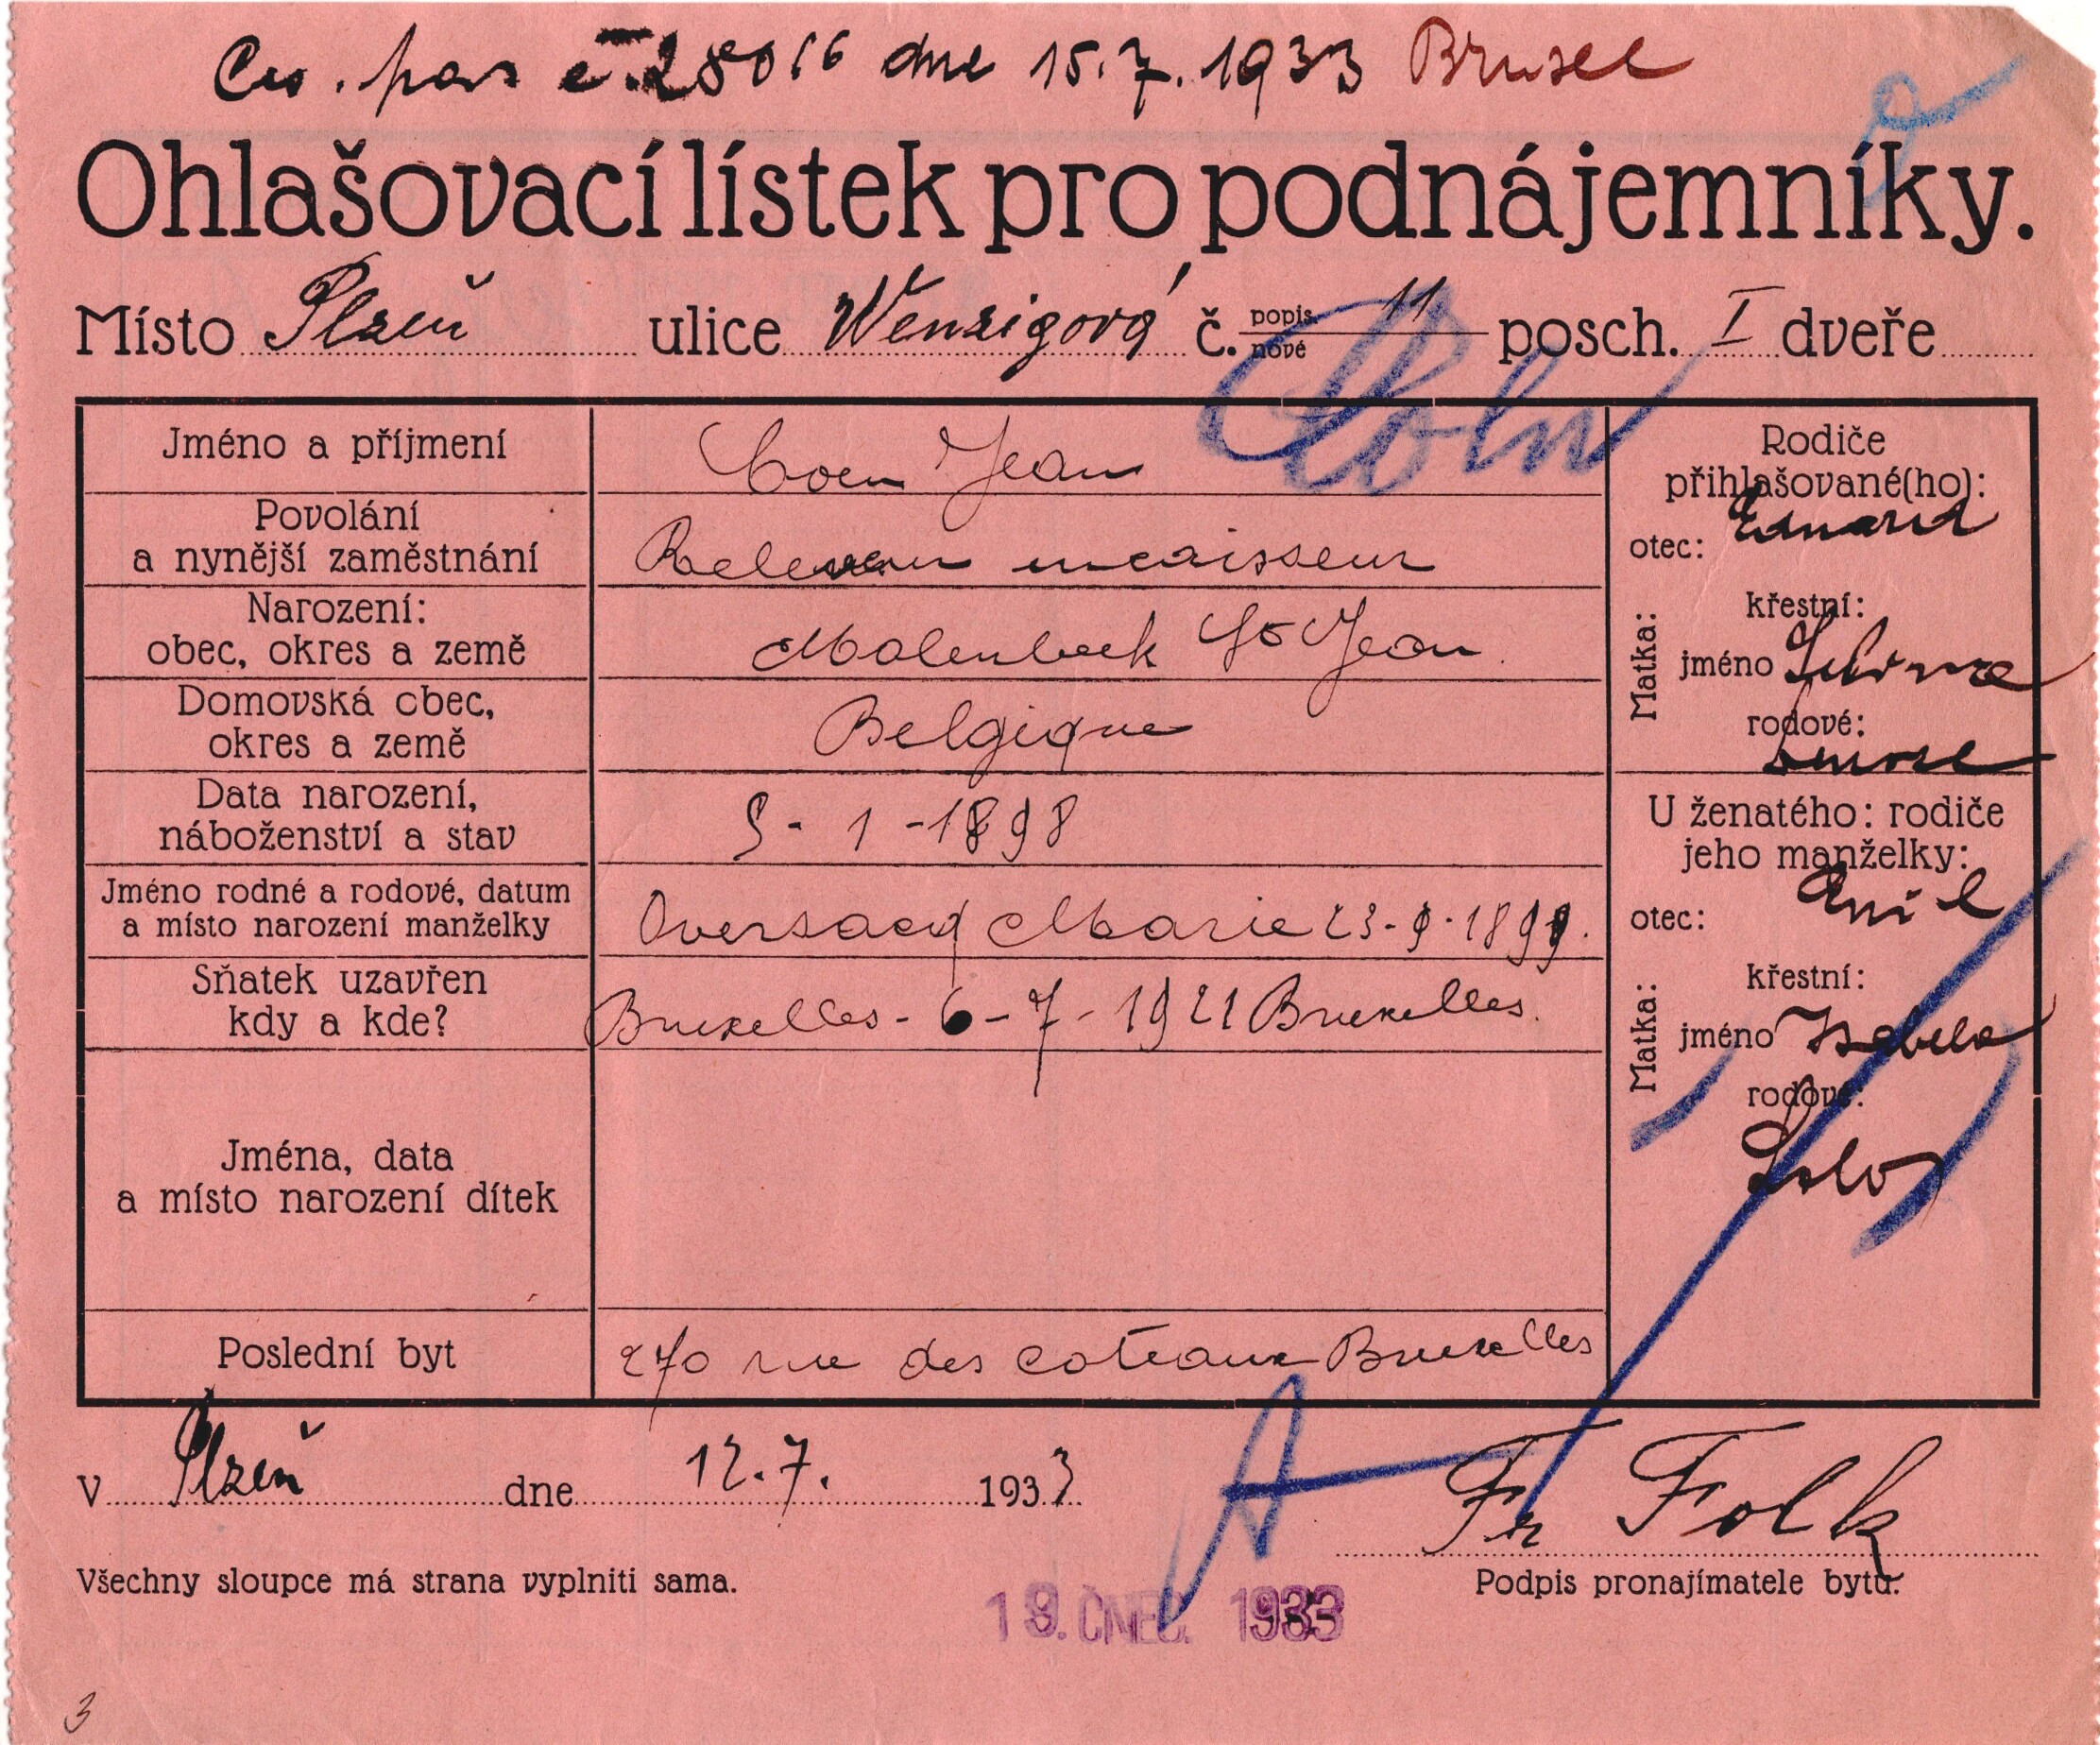 Ces. pas č. 28016 dne 15.7.1933 Brusel
Ohlašovací lístek pro podnájemníky.
Místo Plzeň ulice Wenzigová č. popis. nové 11 posch. I dveře
Jméno a příjmení Coen Jean
Povolání
a nynější zaměstnání Releveur incaisseur
Narození:
obec, okres a země Molenbeek St Jean
Domovská obec,
okres a země Belgique
Data narození,
náboženství a stav 5-1-1898
Jméno rodné a rodové, datum
a místo narození manželky Marie 23-9-1899.
Sňatek uzavřen
kdy a kde? Bruxelles-6-7-1921 Bruxelles.
Jména, data
a místo narození dítek
Poslední byt 270 rue des coteaux Bruxelles
Rodiče
přihlašované(ho):
otec: Eduard
Matka:
křestní:
jméno
rodové:
U ženatého: rodiče
jeho manželky:
otec: Emil
Matka:
křestní:
jméno Isabela
rodové:
v Plzeň dne 12.7. 1933
Fr Folk
Všechny sloupce má strana vyplniti sama.
Podpis pronajímatele bytu.
19. ČNEC. 1933
3